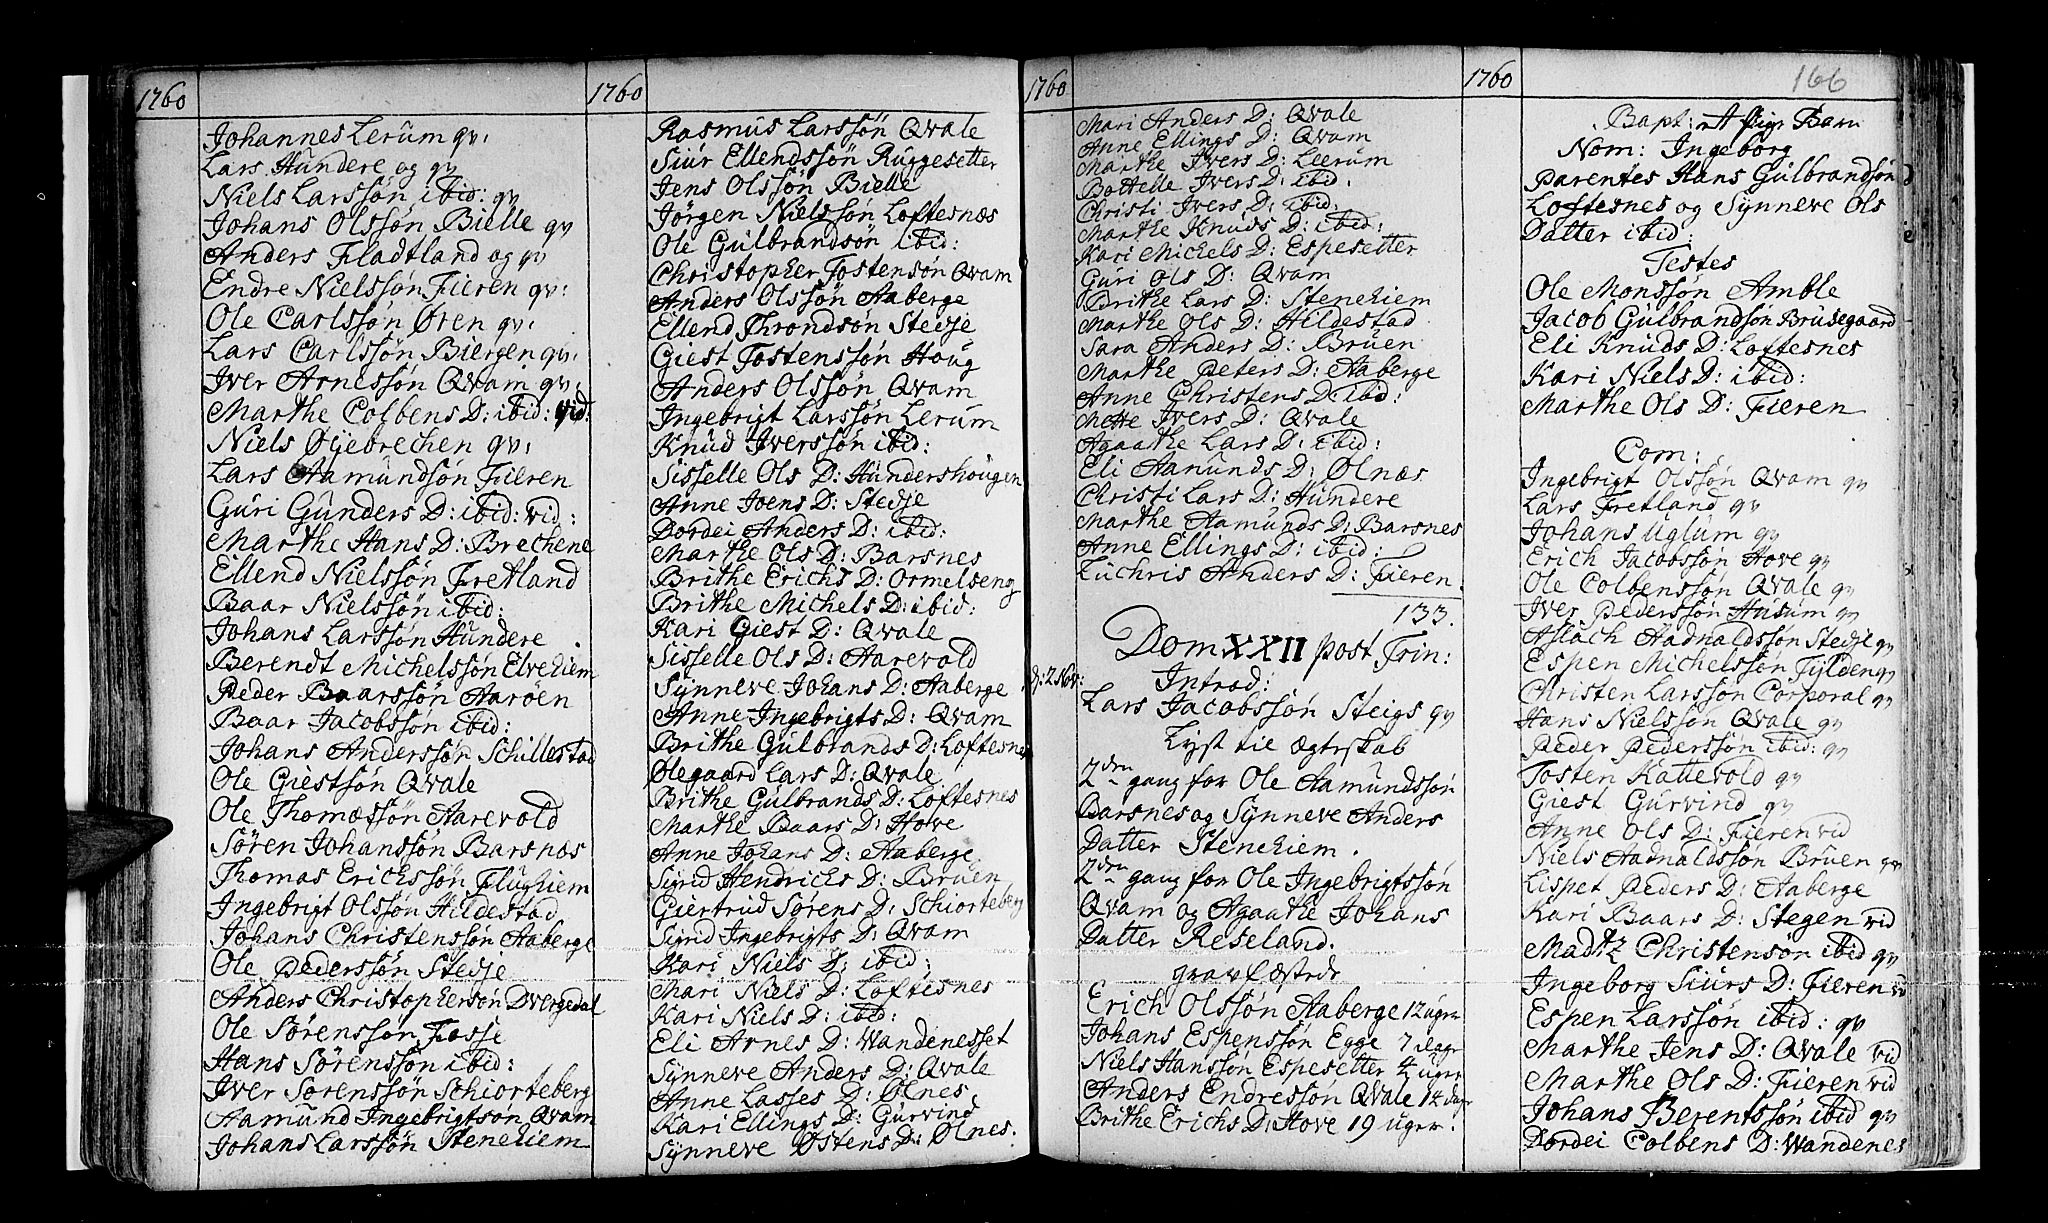 1760
Johannes Lerüm qv:
Lars Hündere og qv
Niels Larssøn ibid: qv
Johans Olssøn Bielle qv
Anders Fladtland og qv
Endre Nielssøn Fieren qv:
Ole Carlssøn Øren qv:
Lars Carlssøn Biergen qv:
Iver Arnessøn Qvam qv:
Marthe Colbens D: ibid: vid:
Niels Øyebrechen qv:
Lars Aamündsøn Fieren
Güri Günders D: ibid: vid:
Marthe Hans D: Brechene
Ellend Nielssøn Fretland
Baar Nielssøn ibid:
Johans Larssøn Hündere
Berendt Michelssøn Elvehiem
Peder Baarssøn Aarøen
Baar Jacobssøn ibid:
Johans Anderssøn Schillestad
Ole Giestsøn Qvale
Ole Thomæssøn Aarevold
Søren Johanssøn Barsnæs
Thomas Erichssøn Flüghiem
Ingebrigt Olssøn Hildestad
Johans Christenssøn Aaberge
Ole Pederssøn Stedje
Anders Christophersøn Dvergedal
Ole Sørenssøn Fosje
Hans Sørenssøn ibid:
Iver Sørenssøn Schiorteberg
Aamünd Ingebrigtsøn Qvam
Johans Larssøn Stenehiem
1760
Rasmus Larssøn Qvale
Siür Ellendssøn Rüggesetter
Jens Olssøn Bielle
Jørgen Nielssøn Loftesnæs
Ole Gülbrandsøn ibid:
Christopher Tostensøn Qvam
Anders Olssøn Aaberge
Ellend Throndsøn Stedje
Giest Tostenssøn Houg
Anders Olssøn Qvam
Ingebrigt Larssøn Lerüm
Knüd Iverssøn ibid:
Sisselle Ols D: Hündershougen
Anne Joens D: Stedje
Dordei Anders D: ibid:
Marthe Ols D: Barsnes
Brithe Erichs D: Ormelseng
Brithe Michels D: ibid:
Kari Giest D: Qvale
Sisselle Ols D: Aarevold
Synneve Johans D: Aaberge
Anne Ingebrigts D: Qvam
Brithe Gülbrands D: Loftesnes
Olegaard Lars D: Qvale
Brithe Gülbrands D: Loftesnes
Marthe Baars D: Hove
Anne Johans D: Aaberge
Sigrid Hendrichs D: Brüen
Giertrud Sørens D: Schiorteberg
Sigrid Ingebrigts D: Qvam
Kari Niels D: ibid:
Mari Niels D: Loftesnes
Kari Niels D: ibid:
Eli Arnes D: Wandenesset
Synneve Anders D: Qvale
Anne Lasses D: Ølnes
Kari Ellings D: Gürvind
Synneve Østens D: Ølnes.
1760
Mari Anders D: Qvale
Anne Ellings D: Qvam
Marthe Ivers D: Leerüm
Bottelle Ivers D: ibid.
Christi Ivers D: ibid:
Marthe Knuds D: ibid:
Kari Michels D: Espesetter
Güri Ols D: Qvam
Brithe Lars D: Stenehiem
Marthe Ols D: Hildestad
Sara Anders D: Brüen
Marthe Peters D: Aaberge
Anne Christens D: ibid:
Mette Ivers D: Qvale
Agaathe Lars D: ibid:
Eli Aamunds D: Ølnæs
Christi Lars D: Hündere
Marthe Aamünds D: Barsnes
Anne Ellings D: ibid:
Luchris Anders D: Fieren.
133.
Dom XXII post Trin:
d: 2 Nov:
Introd:
Lars Jacobssøn Steigs qv
Lyst til Ægteskab
2den gang for Ole Aamundssøn
Barsnes og Synneve Anders
Datter Stenehiem.
2den gang for Ole Ingebrigtssøn
Qvam og Agaathe Johans
Datter Reseland.
gravfæstede
Erich Olssøn Aaberge 12 uger
Johans Espenssøn Egge 7 dage
Niels Hanssøn Espesetter 4 uger
Anders Endressøn Qvale 14 dage
Brithe Erichs D: Hove 19 uger.
1760
166
Bapt: Barn
Nom: Ingeborg
Parentes Hans Gülbrandsøn
Loftesnes og Synneve Ols
Datter ibid:
Testes
Ole Monssøn Amble
Jacob Gülbrandsøn Brüsegaard
Eli Knüds D: Loftesnes
Kari Niels D: ibid:
Marthe Ols D: Fieren
Com:
Ingebrigt Olssøn Qvam qv
Lars Fretland qv
Johans Uglum qv
Erich Jacobssøn Hove qv
Ole Colbenssøn Qvale qv
Iver Pederssøn Husum qv
Aslach Aadnaldssøn Stedje qv
Espen Michelssøn Fylden qv
Christen Larssøn Corporal qv
Hans Nielssøn Qvale qv
Peder Pederssøn ibid: qv
Tosten Kattevold qv
Giest Gürvind qv
Anne Ols D: Fieren vid
Niels Aadnaldssøn Brüen qv
Lispet Peders D: Aaberge
Kari Baars D: Stegen vid
Madtz Christensøn ibid qv
Ingeborg Siurs D: Fieren vid
Espen Larssøn ibid: qv
Marthe Jens D: Qvale vid
Marthe Ols D: Fieren vid
Johans Berentssøn ibid qv
Dordei Colbens D: Wandenes